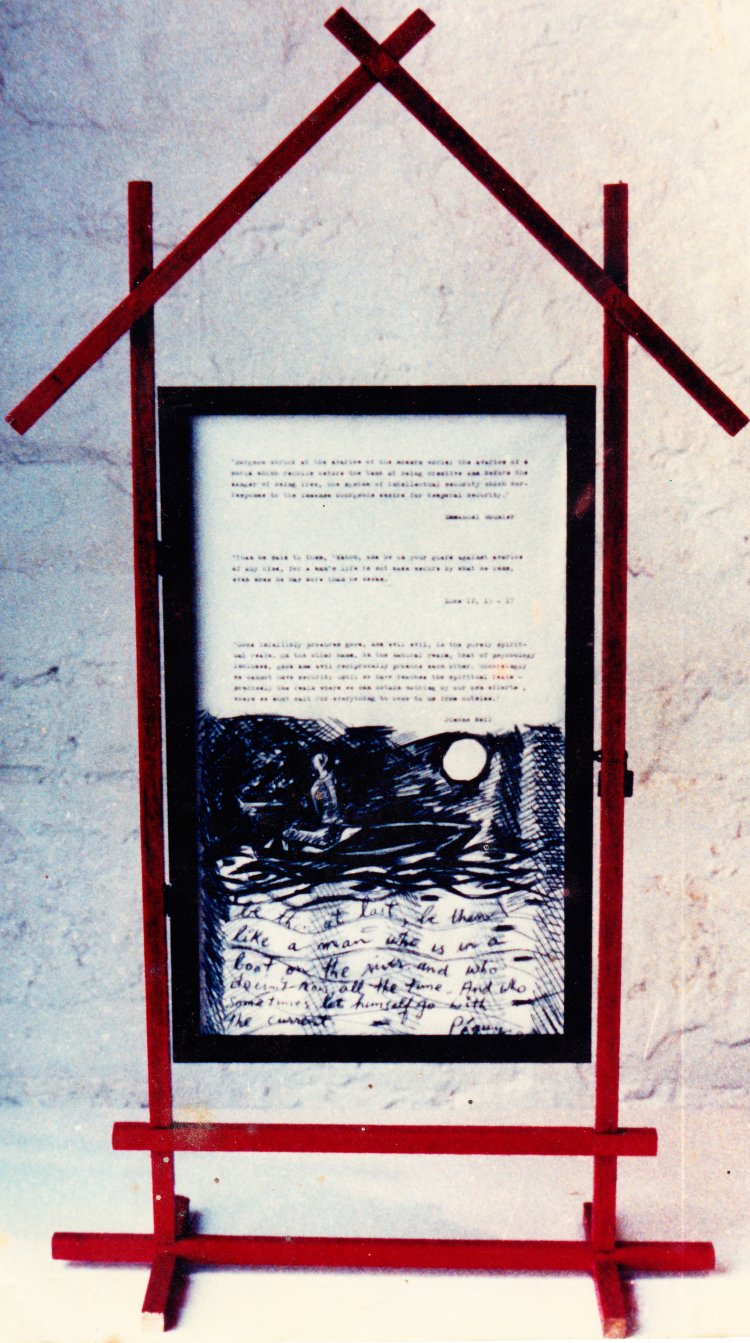 "Bergson struck at the avarice of the modern world: the avarice of a
world which recoils before the task of being creative and before the
danger of being free, the system of intellectual security which cor-
responds to the immense bourgeois desire for temporal security."
Emmanuel Mounier
"Then he said to them, 'Watch, and be on your guard against avarice
of any kind, for a man's life is not made secure by what he owns,
even when he has more than he needs.
Luke 12, 15 -
"Good infallibly produces good, and evil evil, in the purely spirit-
ual realm. On the other hand, in the natural realm, that of psychology
included, good and evil reciprocally produce each other. Accordingly
we cannot have security until we have reached the spiritual realm -
precisely the realm where we can obtain nothing by our own efforts ,
where we must wait for everything to come to us from outside."
Simone Weil
be then at last, be then
like a man who is in a
boat on the river and who
doesn't row all the time. And who
sometimes let himself go with
the current
Péguy